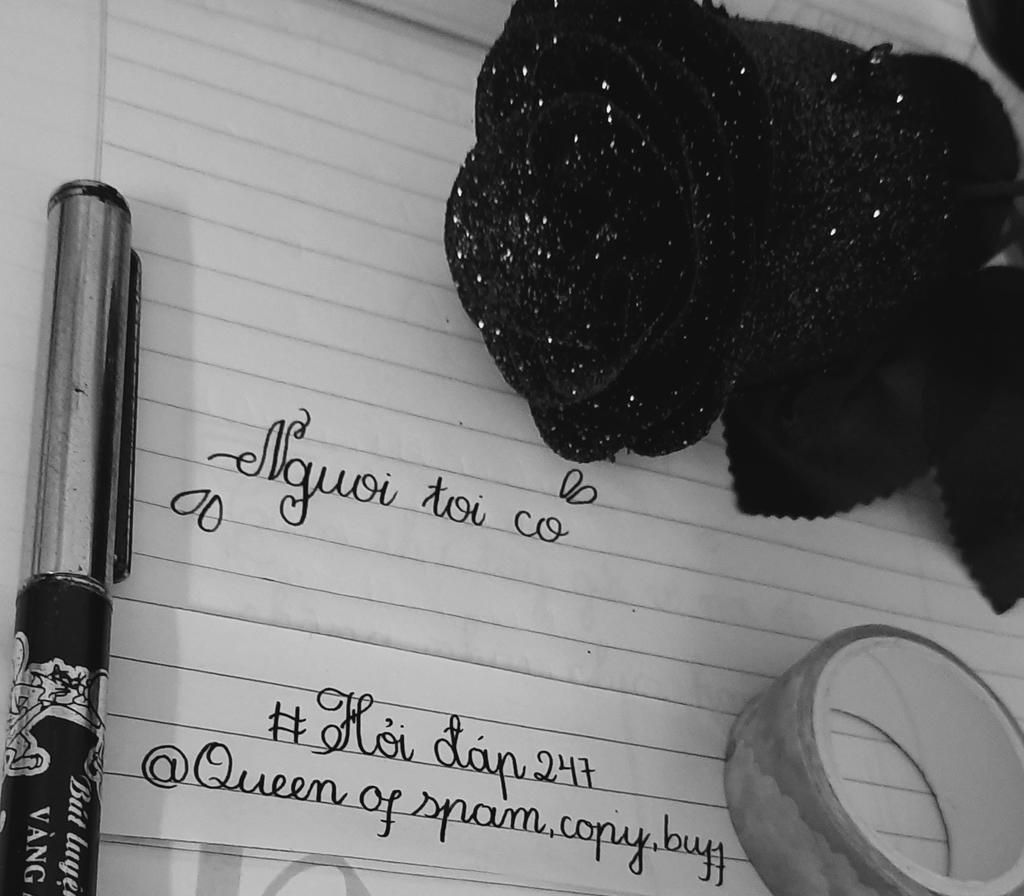 Nguoi toi co
#Hỏi đáp 247
@Queen of spam,copy,buff
Bút luyện
VÀNG